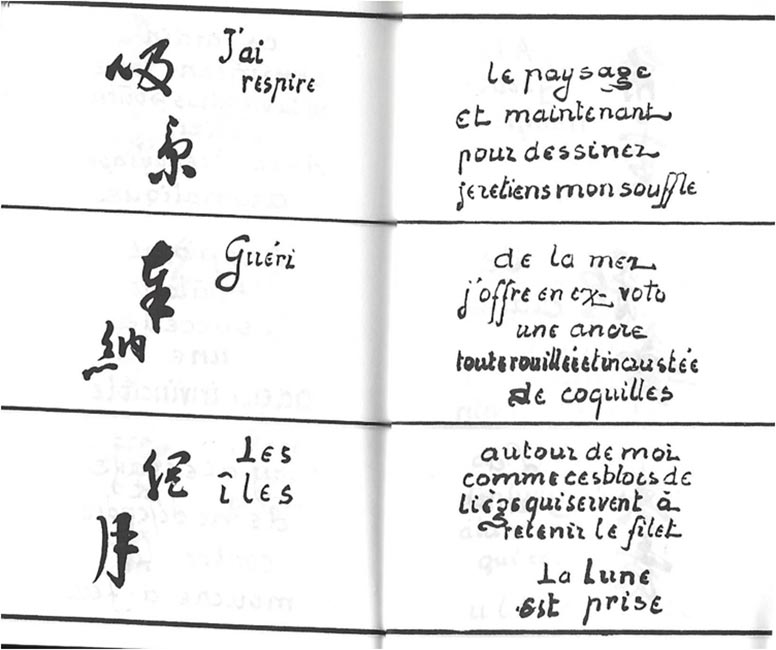 吸
景
J'ai
respire
le paysage
et maintenant
pour dessiner
je retiens mon souffle
奉
納
Guéri
de la mer
j'offre en ex-voto
une ancre
toute rouillée et incrustée
de coquilles
網
月
Les
îles
autour de moi
comme ces blocs de
liège qui servent à
retenir le filet
La Lune
est prise